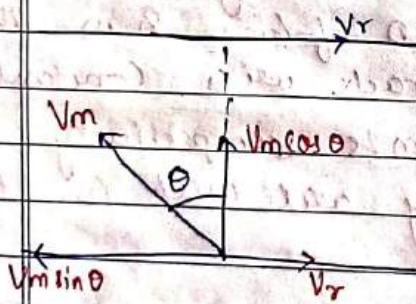 Vr
Vm
Vm cos θ
θ
Vm sin θ
Vr